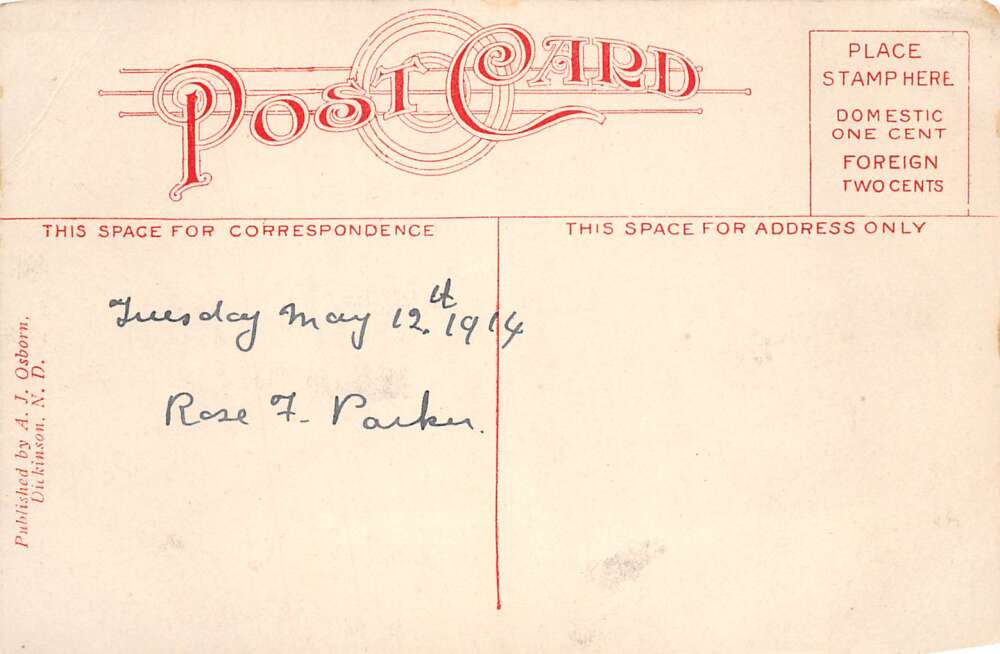 POST CARD
PLACE
STAMP HERE
DOMESTIC
ONE CENT
FOREIGN
TWO CENTS
THIS SPACE FOR CORRESPONDENCE
THIS SPACE FOR ADDRESS ONLY
Tuesday May 12th. 1914
Rose F. Parker.
Published by A. J. Osborn,
Dickinson, N. D.